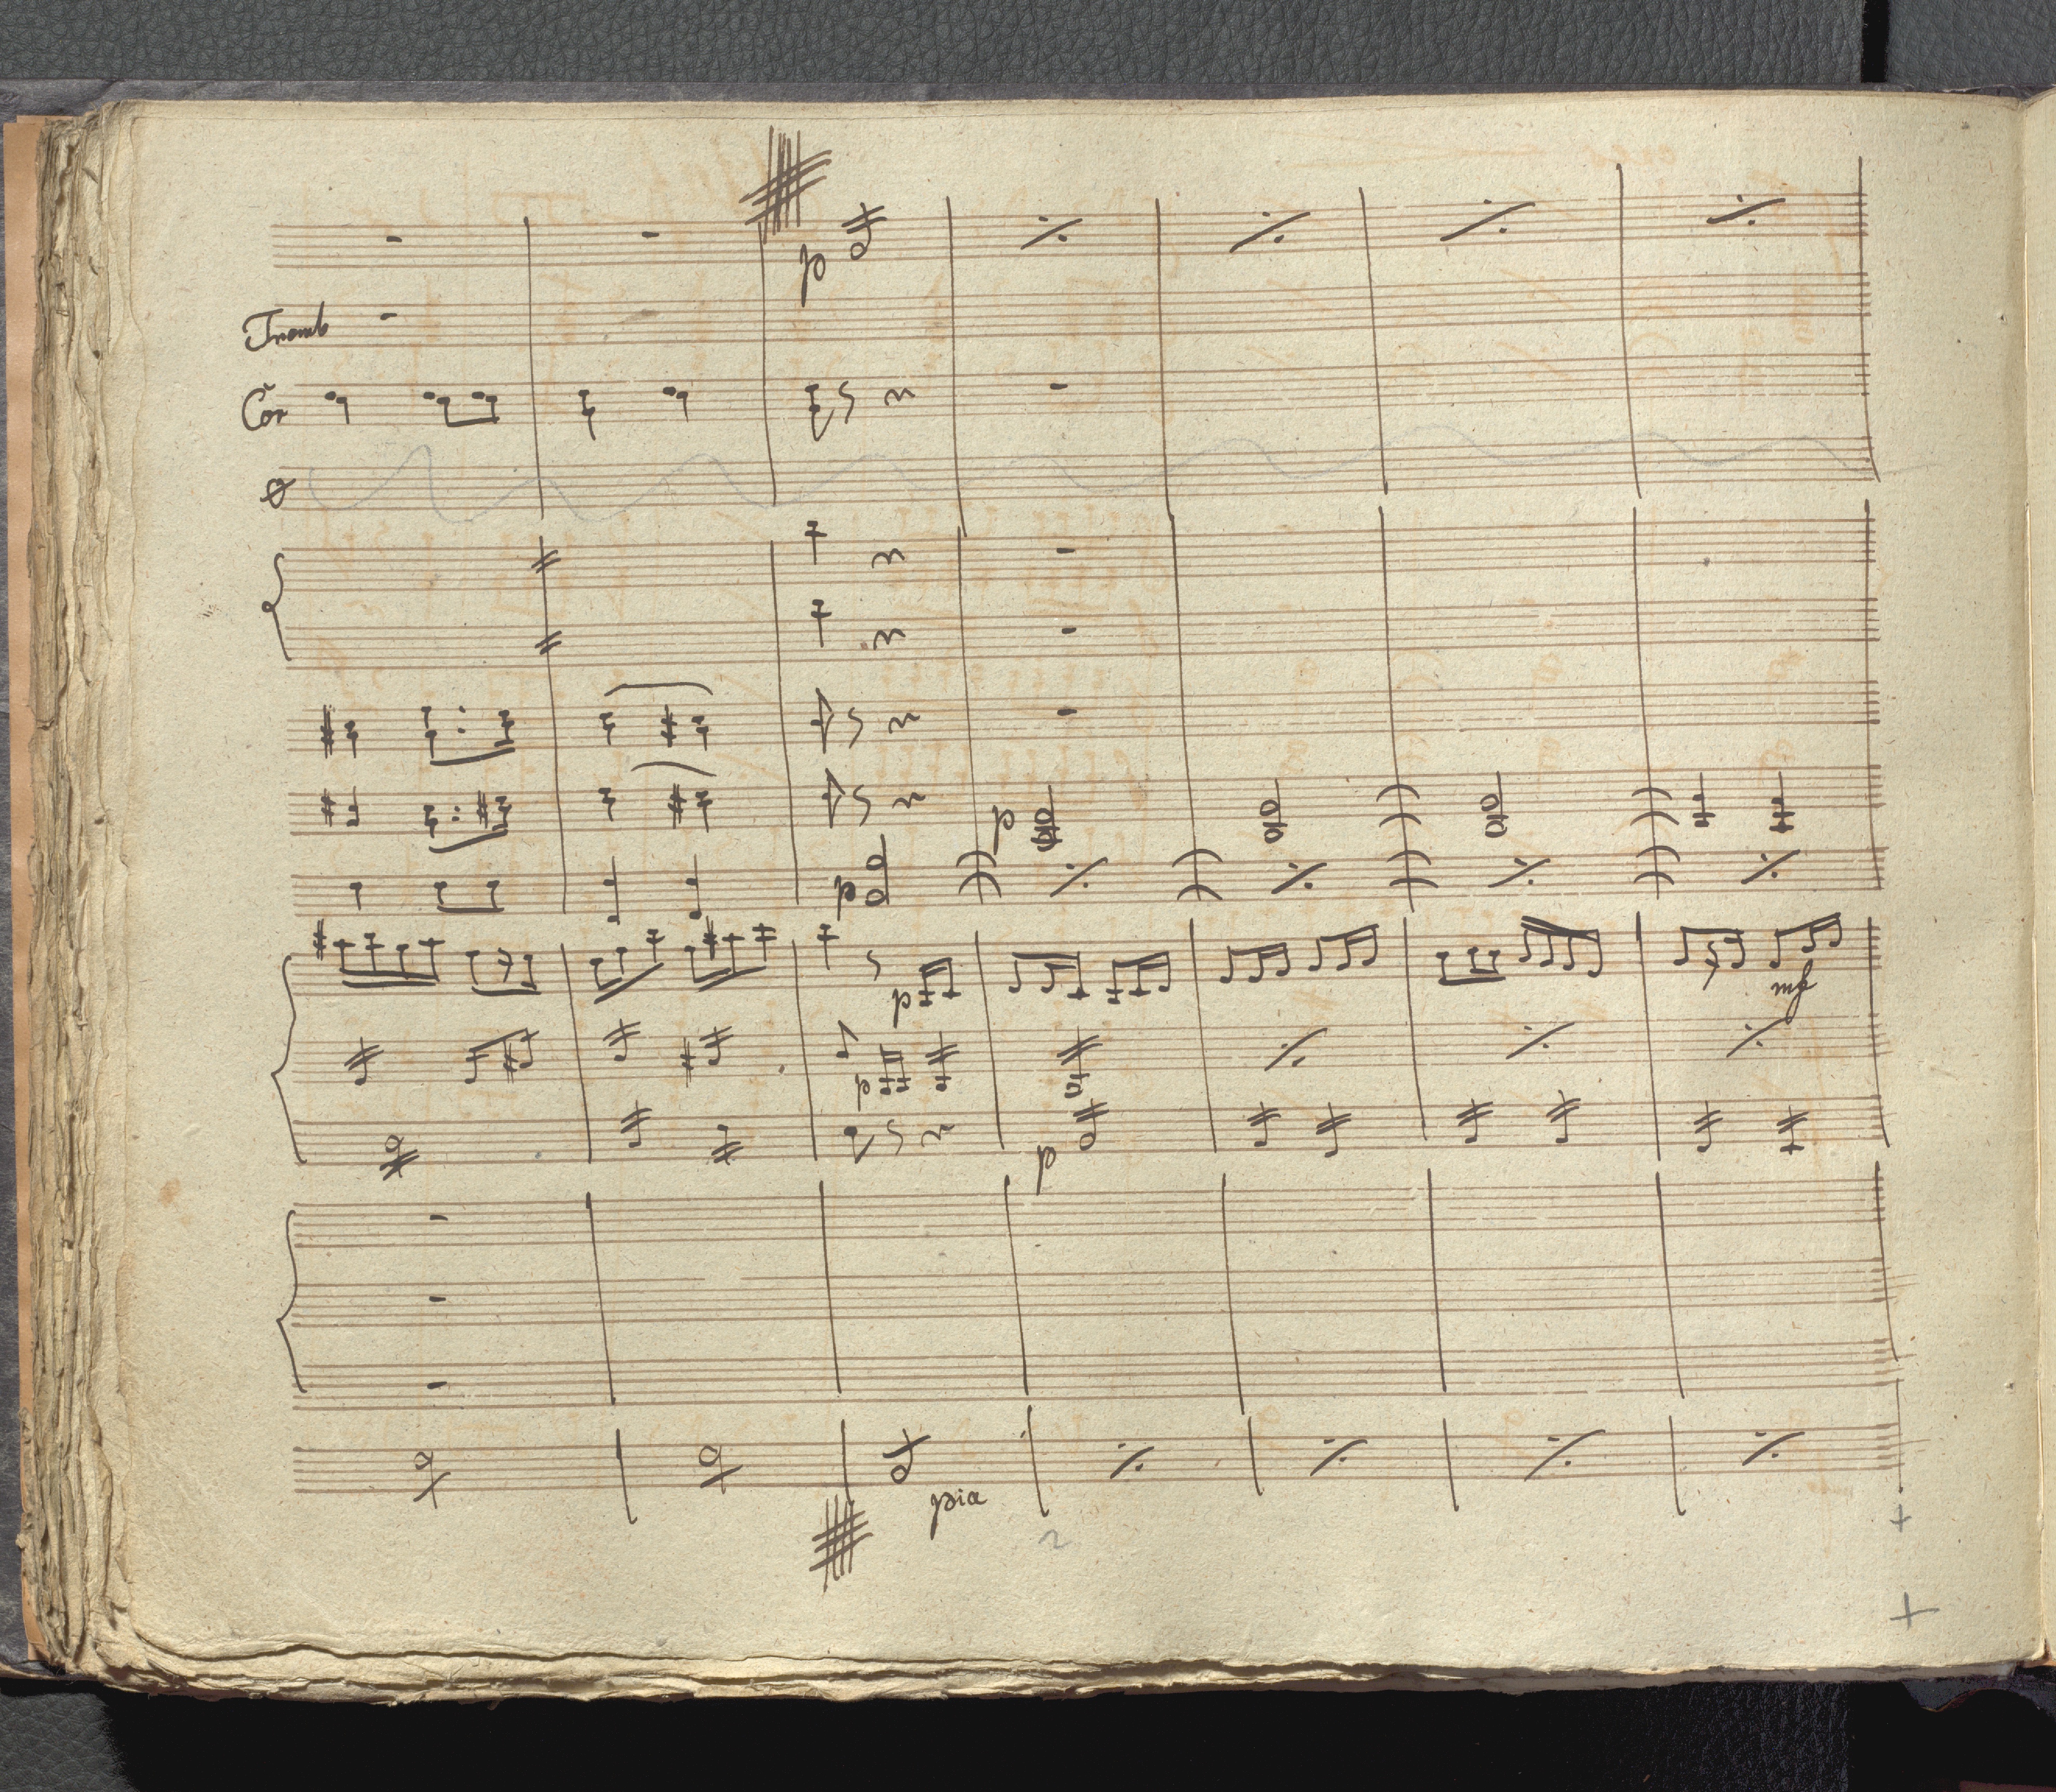 p
Tromb
Cor
p
p
p
mf
p
p
pia
2